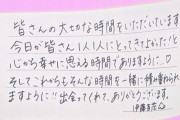 皆さんの大切な時間をいただいています
今日が皆さん1人1人にとってきてよかった!と
心から幸せに思える時間でありますように♡
そしてこれからもそんな時間を一緒に積み重ねられ
ますように!!出会ってくれて、ありがとうございます。